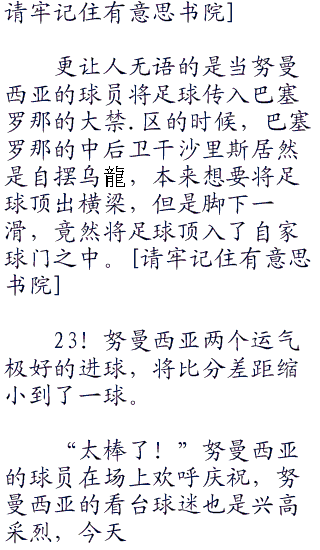 请牢记住有意思书院]
更让人无语的是当努曼
西亚的球员将足球传入巴塞
罗那的大禁.区的时候，巴塞
罗那的中后卫干沙里斯居然
是自摆乌龍，本来想要将足
球顶出横梁，但是脚下一
滑，竟然将足球顶入了自家
球门之中。[请牢记住有意思
书院]
23！努曼西亚两个运气
极好的进球，将比分差距缩
小到了一球。
“太棒了！”努曼西亚
的球员在场上欢呼庆祝，努
曼西亚的看台球迷也是兴高
采烈，今天